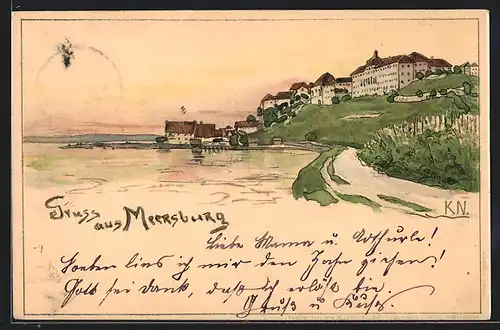 Gruss
aus Meersburg
K.N.
Liebe Mama u.
Soeben liess ich mir den Zahn ziehen!
Gott sei Dank, daß ich erlöst bin.
Gruß u Kuss.